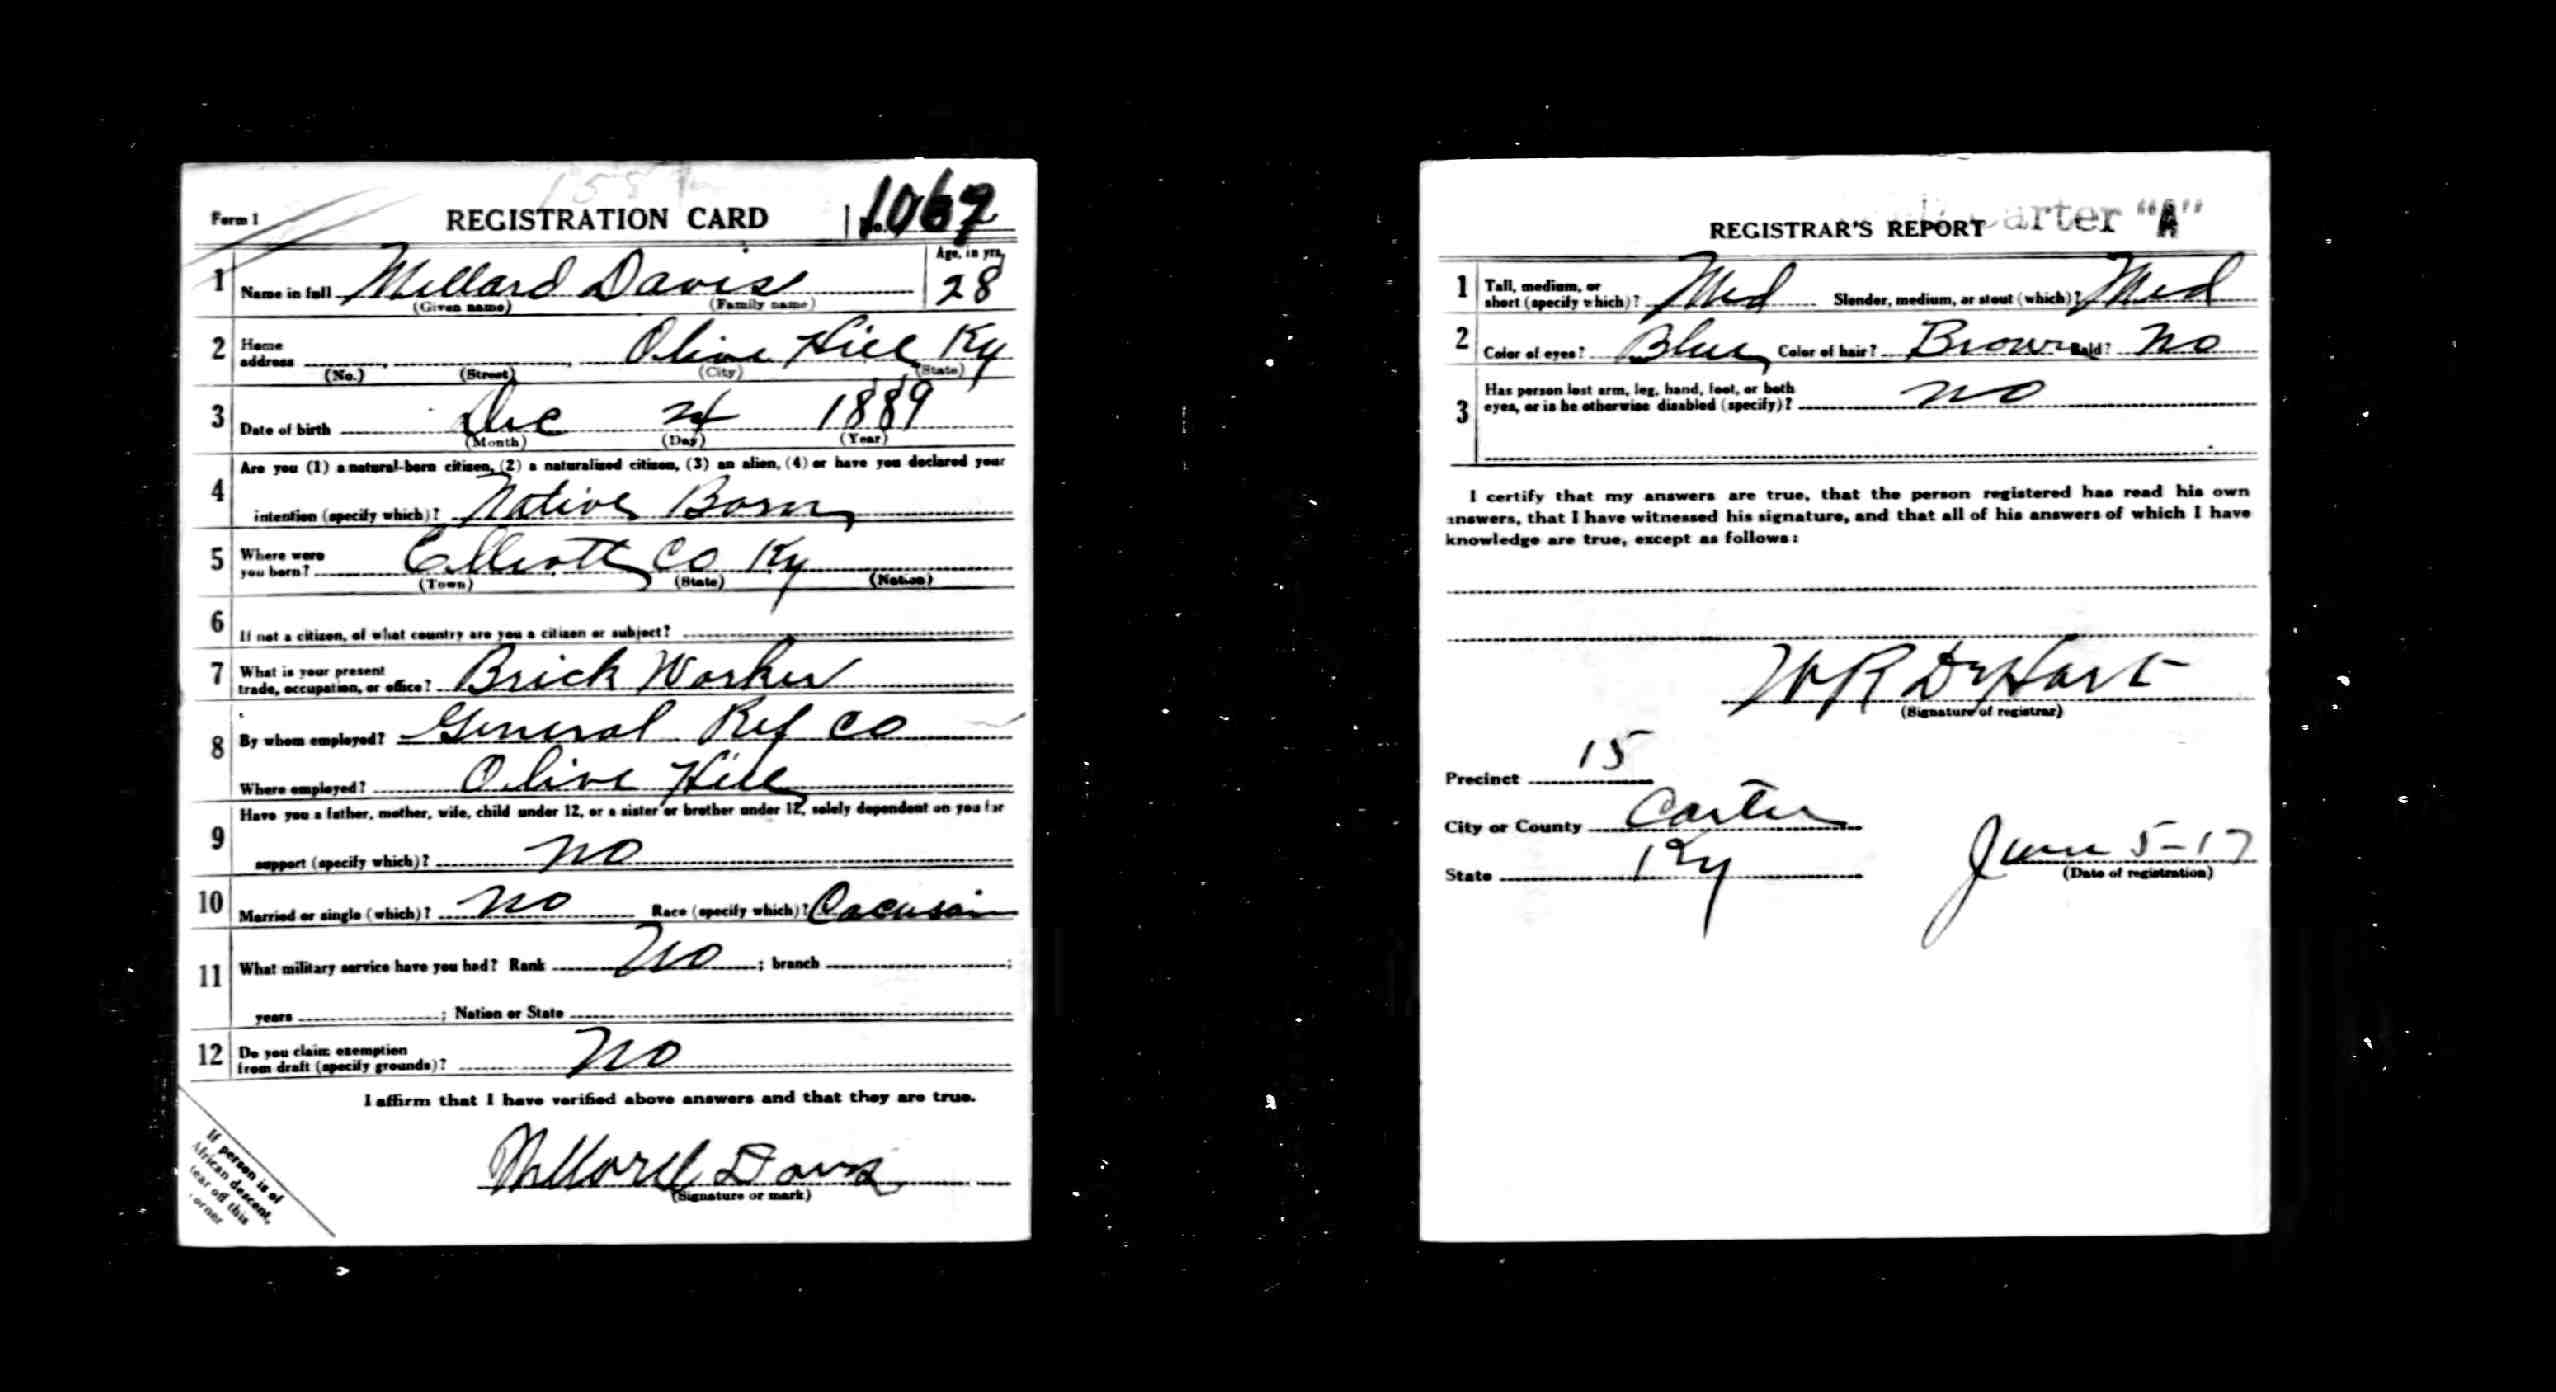 Form 1
REGISTRATION CARD No. 1067
1 Name in full Millard Davis Age, in yrs. 28
(Given name) (Family name)
2 Home address Olive Hill Ky
(No.) (Street) (City) (State)
3 Date of birth Dec 24 1889
(Month) (Day) (Year)
4 Are you (1) a natural-born citizen, (2) a naturalized citizen, (3) an alien, (4) or have you declared your
intention (specify which)? Native Born
5 Where were you born? Elliott Co Ky
(Town) (State) (Nation)
6 If not a citizen, of what country are you a citizen or subject?
7 What is your present
trade, occupation, or office? Brick Worker
8 By whom employed? General Ref Co
Where employed? Olive Hill
9 Have you a father, mother, wife, child under 12, or a sister or brother under 12, solely dependent on you for
support (specify which)? No
10 Married or single (which)? No Race (specify which)? Cacusain
11 What military service have you had? Rank No ; branch ;
years ; Nation or State
12 Do you claim exemption
from draft (specify grounds)? No
I affirm that I have verified above answers and that they are true.
Millard Davis
(Signature or mark)
If person is of
African descent,
tear off this
corner
Carter "A"
REGISTRAR'S REPORT
1 Tall, medium, or
short (specify which)? Med Slender, medium, or stout (which)? Med
2 Color of eyes? Blue Color of hair? Brown Bald? No
3 Has person lost arm, leg, hand, foot, or both
eyes, or is he otherwise disabled (specify)? No
I certify that my answers are true, that the person registered has read his own
answers, that I have witnessed his signature, and that all of his answers of which I have
knowledge are true, except as follows:
W R DeHart
(Signature of registrar)
Precinct 15
City or County Carter
State Ky
June 5-17
(Date of registration)